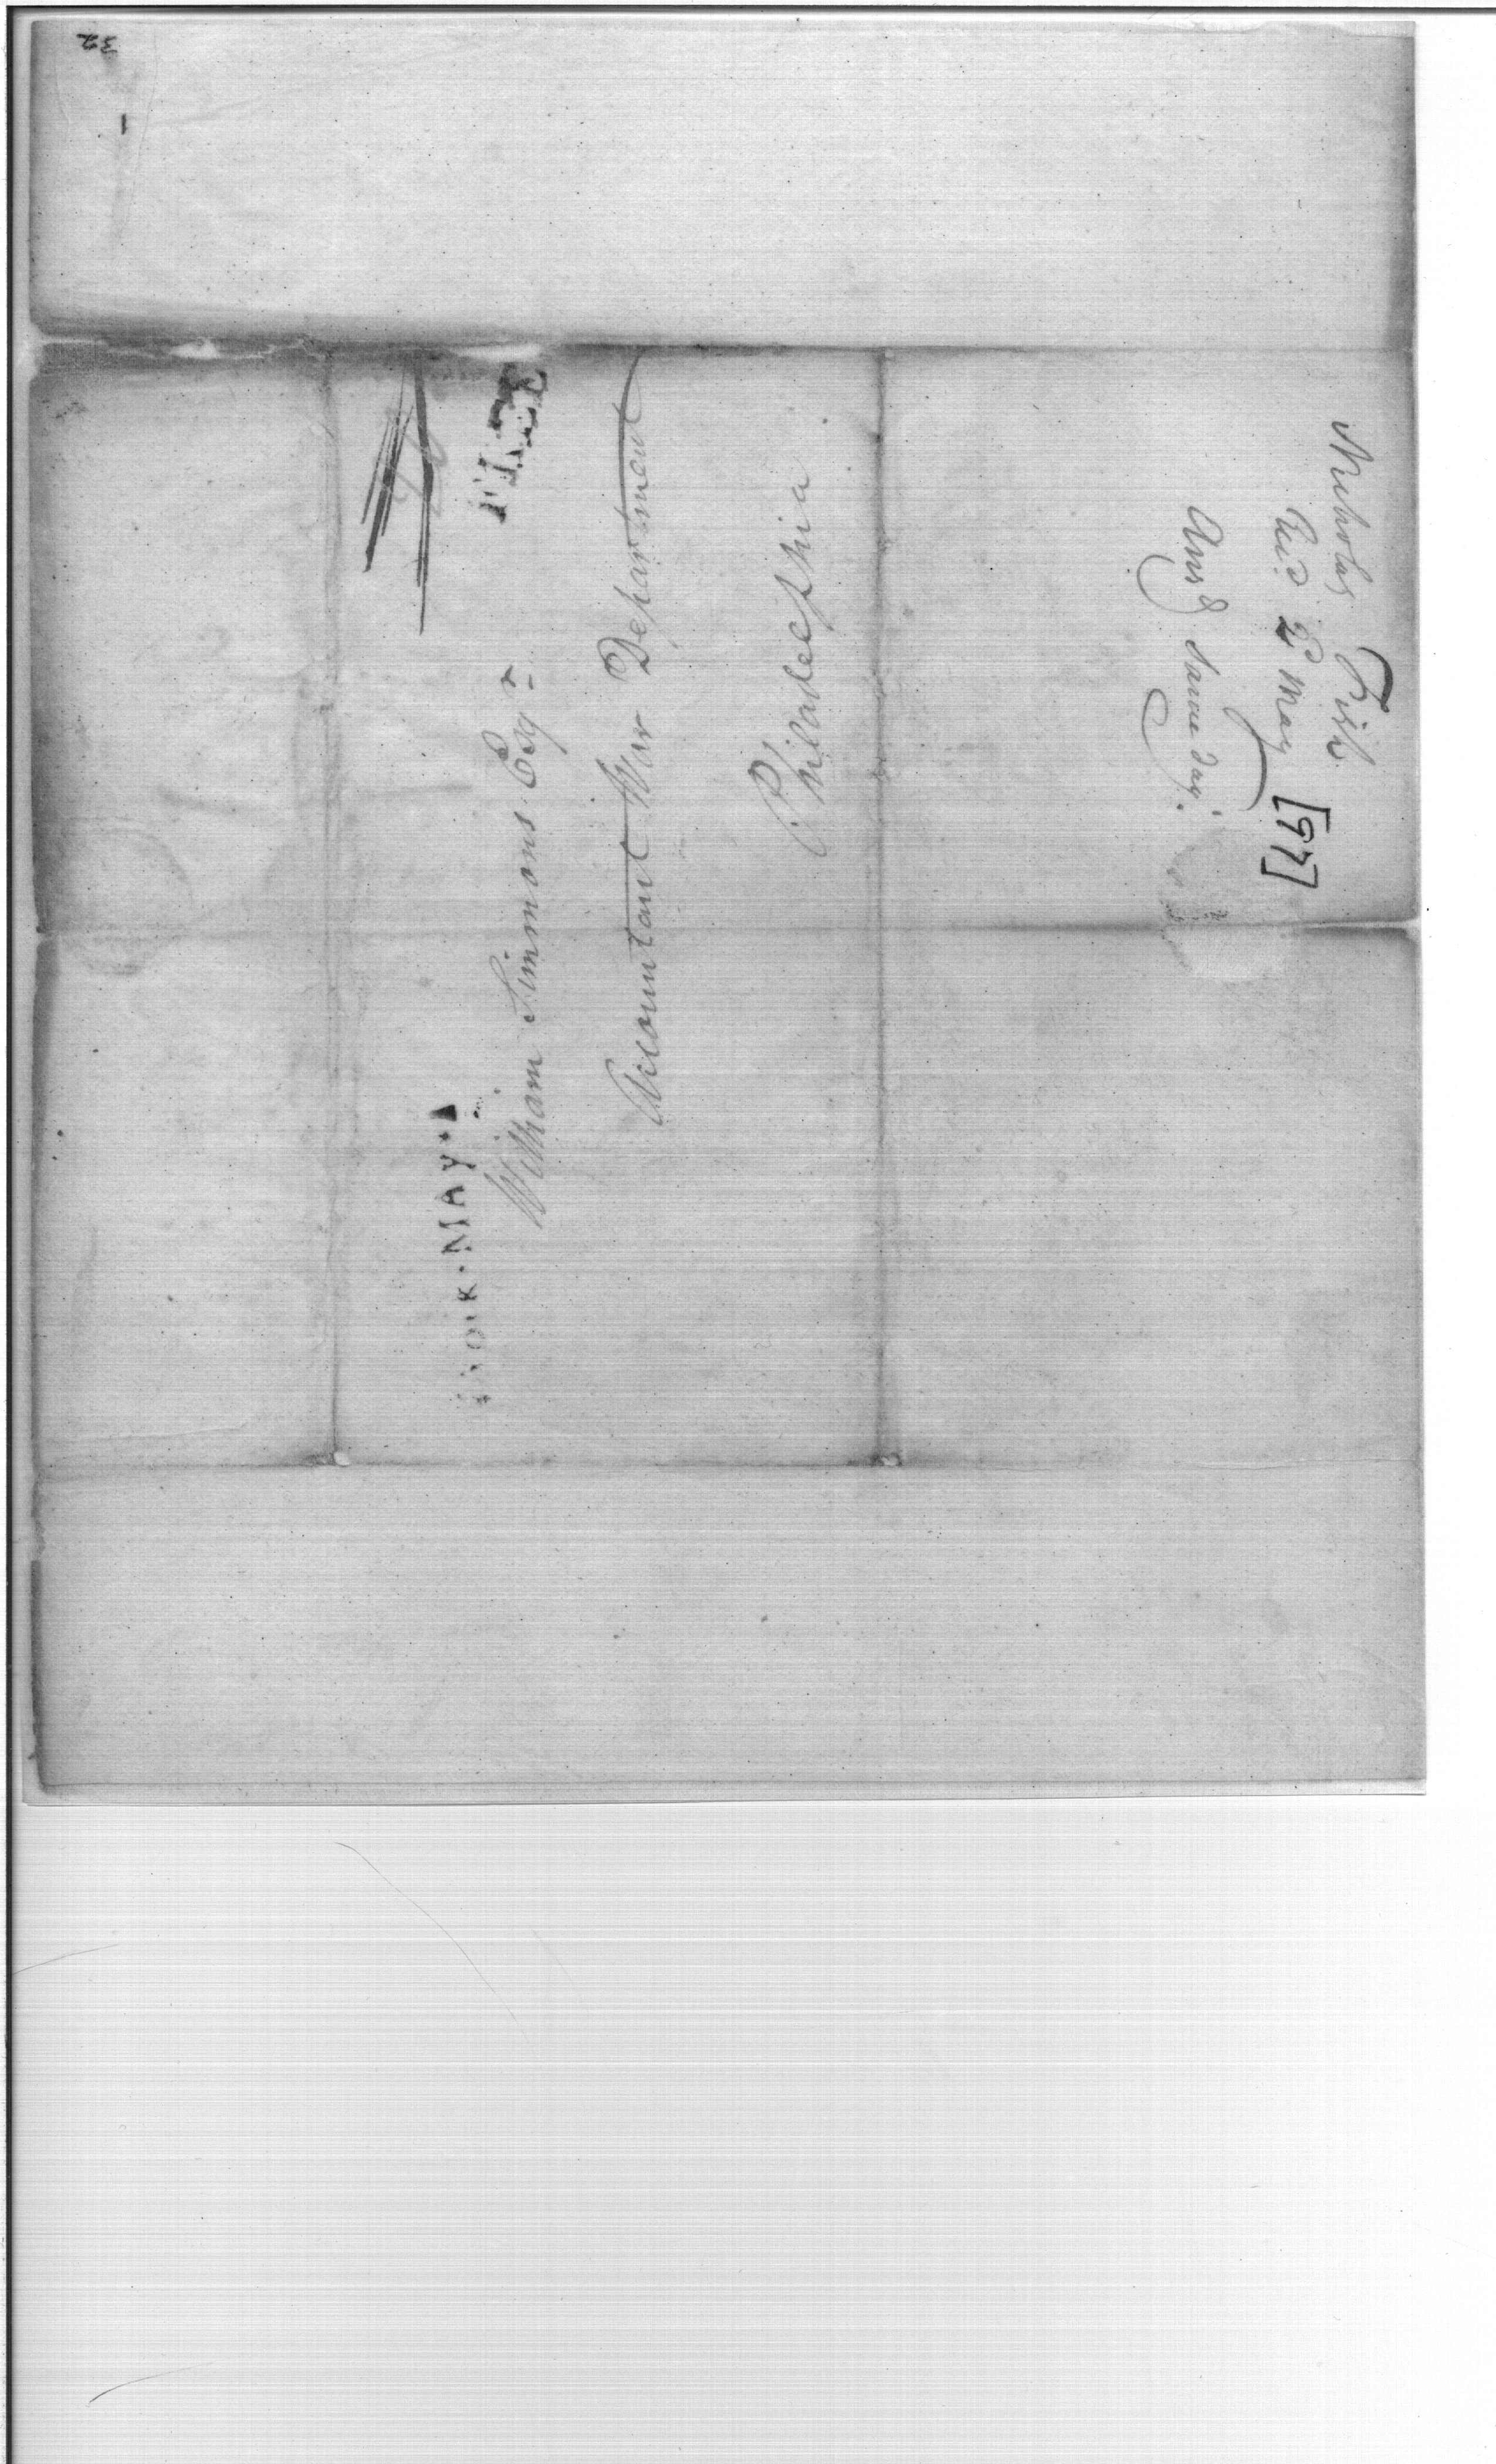 FREE
YORK · MAY · 1
William Simmons Esqr
Accountant War Department
Philadelphia
Nicholas Fish
Recd 2 May [97]
Ansd same day.
32